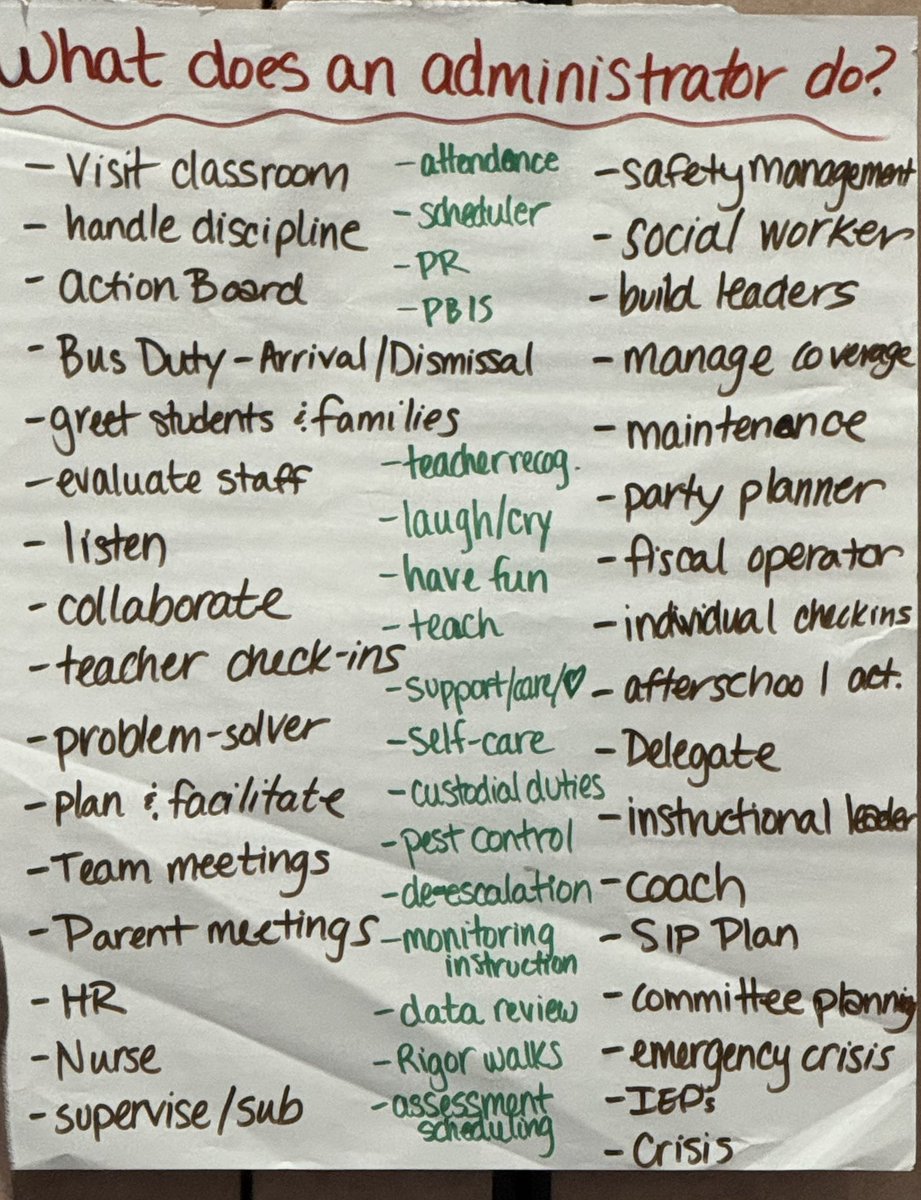 What does an administrator do?
- Visit classroom
- handle discipline
- Action Board
- Bus Duty - Arrival/Dismissal
- greet students & families
- evaluate staff
- listen
- collaborate
- teacher check-ins
- problem-solver
- plan & facilitate
- Team meetings
- Parent meetings
- HR
- Nurse
- supervise/sub
- attendance
- scheduler
- PR
- PBIS
- teacher recog.
- laugh/cry
- have fun
- teach
- support/care/♡
- self-care
- custodial duties
- pest control
- de-escalation
- monitoring
instruction
- data review
- Rigor walks
- assessment
scheduling
- safety management
- social worker
- build leaders
- manage coverage
- maintenance
- party planner
- fiscal operator
- individual checkins
- afterschool act.
- Delegate
- instructional leader
- coach
- SIP Plan
- committee planning
- emergency crisis
- IEPs
- Crisis